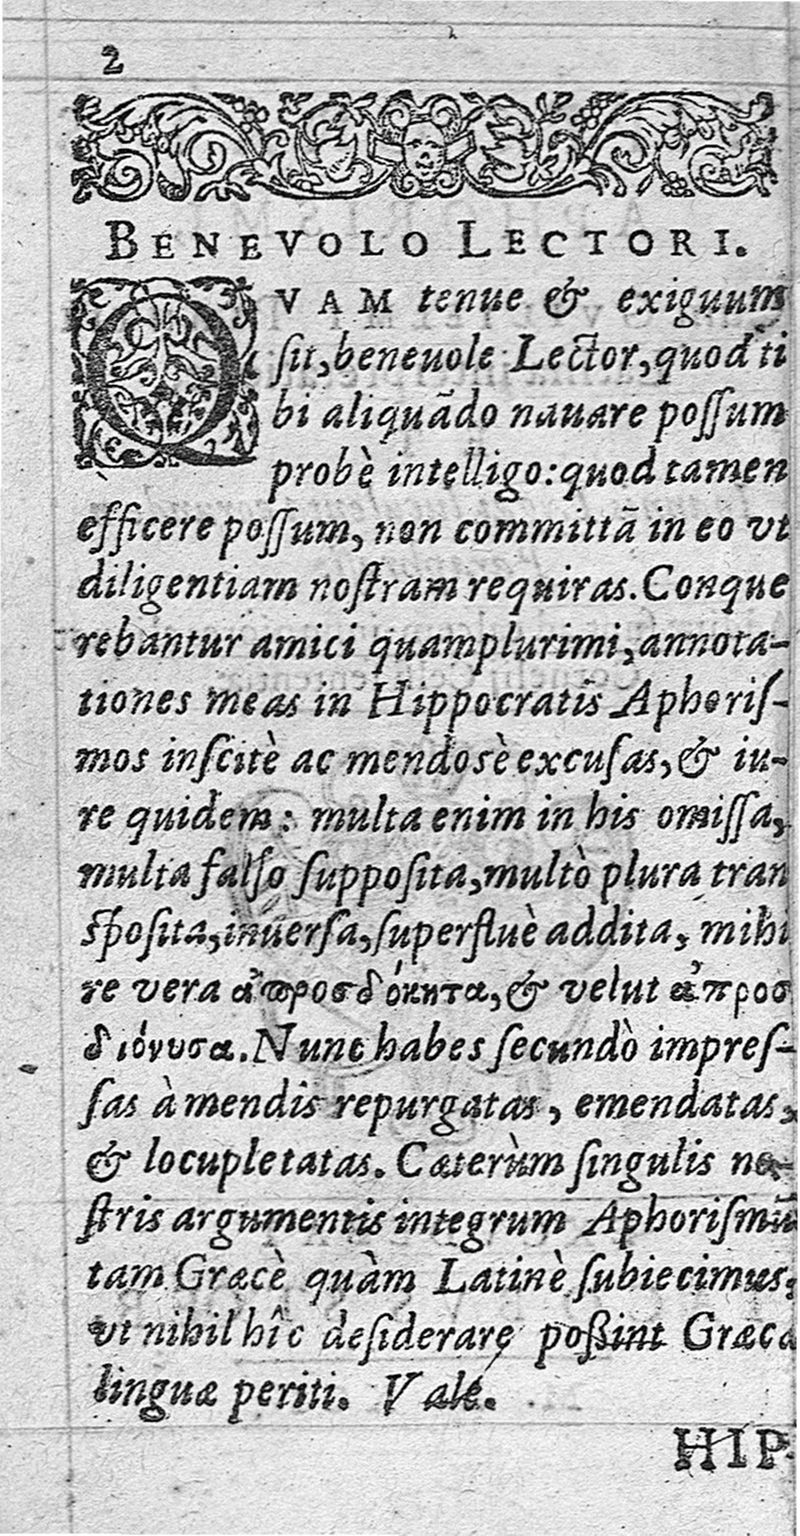 2
BENEVOLO LECTORI.
QVAM tenue & exiguum
ſit, beneuole Lector, quod ti
bi aliquãdo nauare poſſum
probè intelligo: quod tamen
efficere poſſum, non committã in eo vt
diligentiam noſtram requiras. Conque
rebantur amici quamplurimi, annota-
tiones meas in Hippocratis Aphoriſ-
mos inſcitè ac mendosè excuſas, & iu-
re quidem: multa enim in his omiſſa,
multa falſo ſuppoſita, multò plura tran
ſpoſita, inuerſa, ſuperfluè addita, mihi
re vera ἀπροσδόκητα, & velut ἀπροσ
διόνυσα. Nunc habes ſecundò impreſ-
ſas à mendis repurgatas, emendatas,
& locupletatas. Cæterùm ſingulis no-
ſtris argumentis integrum Aphoriſmũ
tam Græcè quàm Latinè ſubiecimus,
vt nihil hîc deſiderare poßint Græca
linguæ periti. Vale.
HIP-